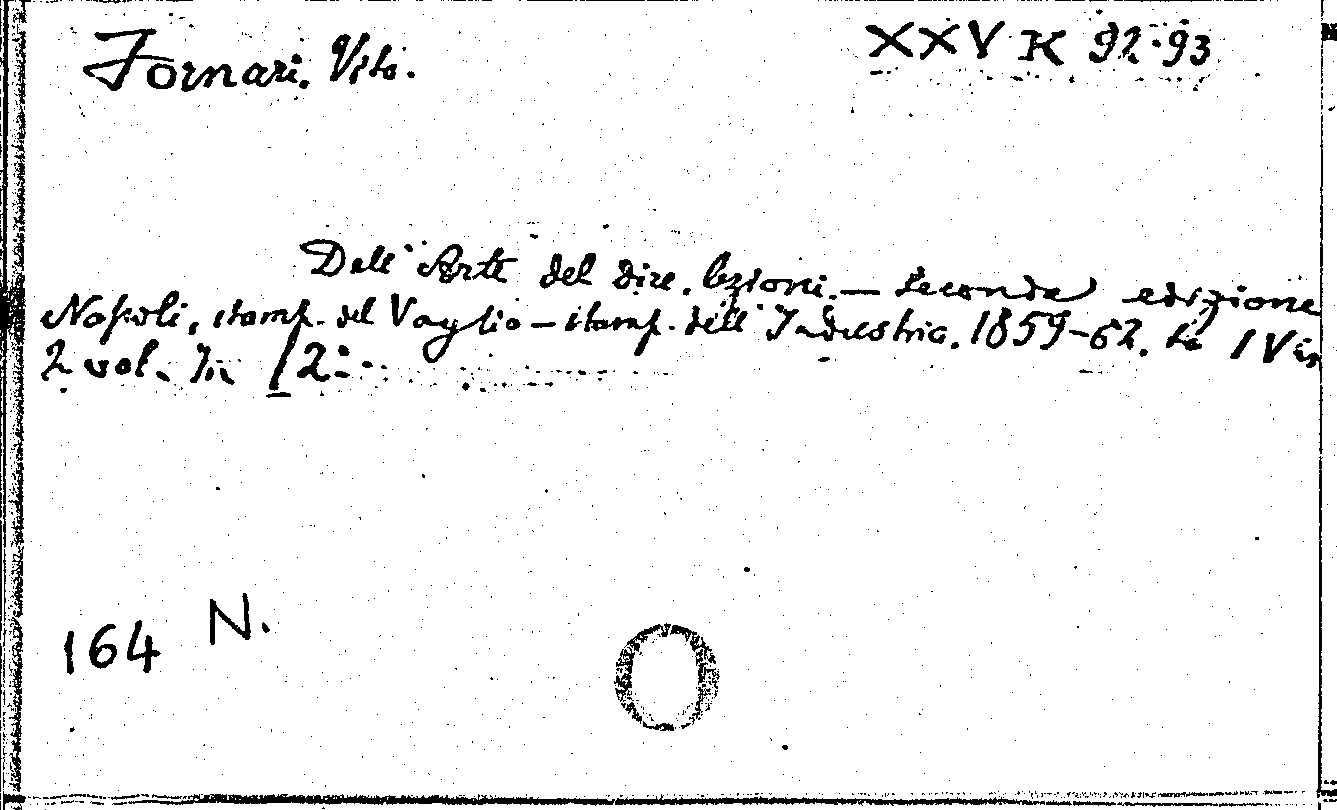 Fornari. Vito.
XXV K 92-93
Dell'Arte del dire. lezioni. — Seconda edizione
Napoli, stamp. del Vaglio - stamp. dell'Industria. 1859-62. IV in
2 vol. In 12:
164 N.